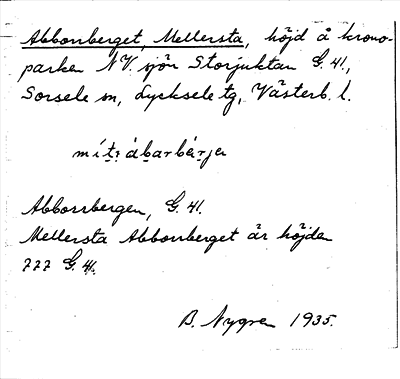 Abborrberget, Mellersta, höjd å krono-
parken NV. sjön Storjuktan G. 41.,
Sorsele sn, Lycksele tg, Västerb. l.
Abborrbergen, G. 41.
Mellersta Abborrberget är höjden
777 G. 41.
B. Nygren 1935.